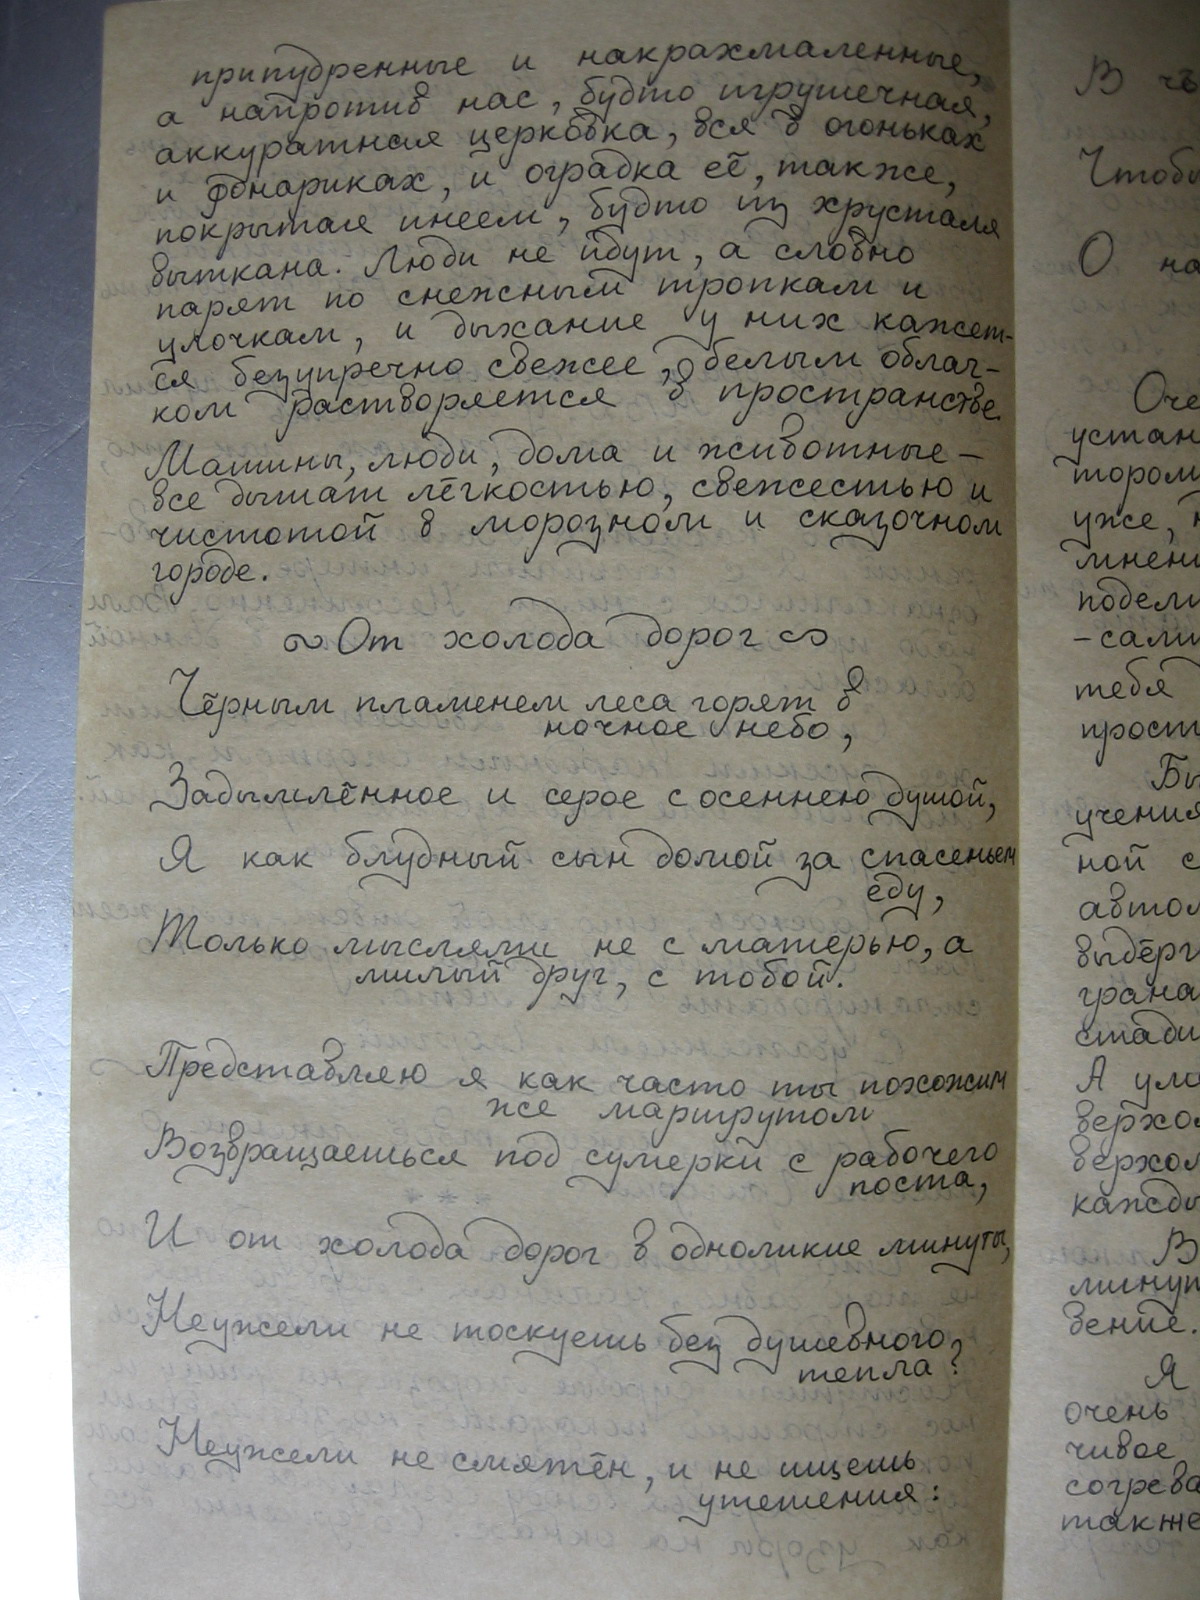 припудренные и накрахмаленные,
а напротив нас, будто игрушечная,
аккуратная церковка, вся в огоньках
и фонариках, и оградка её, также,
покрытая инеем, будто из хрусталя
выткана. Люди не идут, а словно
парят по снежным тропкам и
улочкам, и дыхание у них кажет-
ся безупречно свежее, белым облач-
ком растворяется в пространстве.
Машины, люди, дома и животные –
все дышат лёгкостью, свежестью и
чистотой в морозном и сказочном
городе.
~ От холода дорог ~
Чёрным пламенем леса горят в
ночное небо,
Задымлённое и серое с осеннею душой,
Я как блудный сын домой за спасеньем
еду,
Только мыслями не с матерью, а
милый друг, с тобой.
Представляю я как часто ты похожим
же маршрутом
Возвращаешься под сумерки с рабочего
поста,
И от холода дорог в одноликие минуты,
Неужели не тоскуешь без душевного
тепла?
Неужели не смятён, и не ищешь
утешения:
В
Чтобы
О на
Оче
устан
тором
уже, н
мнени
подели
-сами
тебя
прост
Бы
учения
ной с
автом
выдерг
грана
стади
А ум
верхом
верхом
кажды
В
минут
вение.
Я
очень
чивое
согрева
также